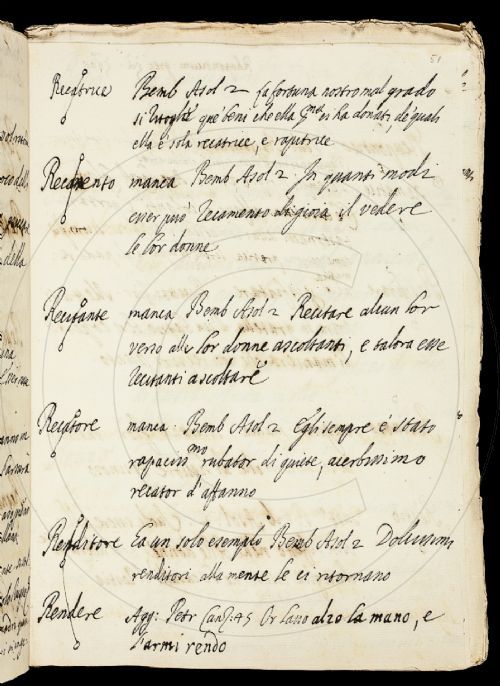 51
Recatrice Bemb Asol 2 La fortuna nostro mal grado
si ritoglie que beni che ella ci ha donati, de quali
ella è sola recatrice, e rapitrice
Recamento manca Bemb Asol 2 In quanti modi
esser può recamento di gioia il vedere
le lor donne
Recitante manca Bemb Asol 2 Recitare alcun lor
verso alle lor donne ascoltanti, e talora esse
recitanti ascoltare
Recatore manca Bemb Asol 2 Egli sempre è stato
rapaciss.mo rubator di quiete, acerbissimo
recator d'affanno
Renditore Ea un solo esemplo Bemb Asol 2 Dolcissimi
renditori alla mente le ci ritornano
Rendere Agg: Petr Canz. 45 Or lasso alzo la mano, e
l'armi rendo